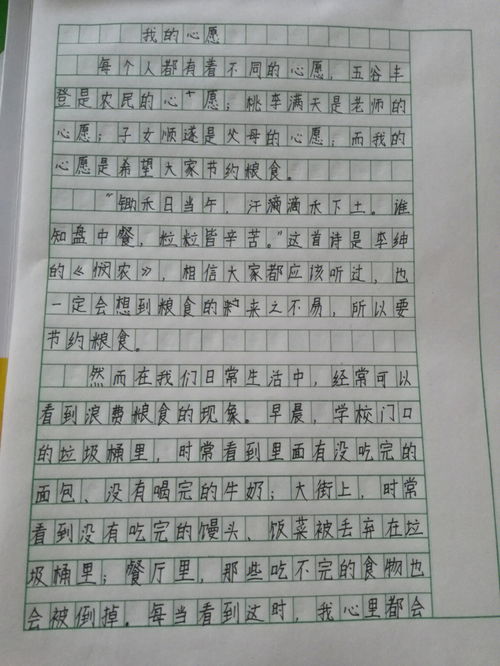 我的心愿
每个人都有着不同的心愿，五谷丰
登是农民的心愿；桃李满天是老师的
心愿；子女顺遂是父母的心愿；而我的
心愿是希望大家节约粮食。
“锄禾日当午，汗滴滴禾下土。谁
知盘中餐，粒粒皆辛苦。”这首诗是李绅
的《悯农》，相信大家都应该听过，也
一定会想到粮食的来之不易，所以要
节约粮食。
然而在我们日常生活中，经常可以
看到浪费粮食的现象。早晨，学校门口
的垃圾桶里，时常看到里面有没吃完的
面包、没有喝完的牛奶；大街上，时常
看到没有吃完的馒头、饭菜被丢弃在垃
圾桶里；餐厅里，那些吃不完的食物也
会被倒掉。每当看到这时，我心里都会